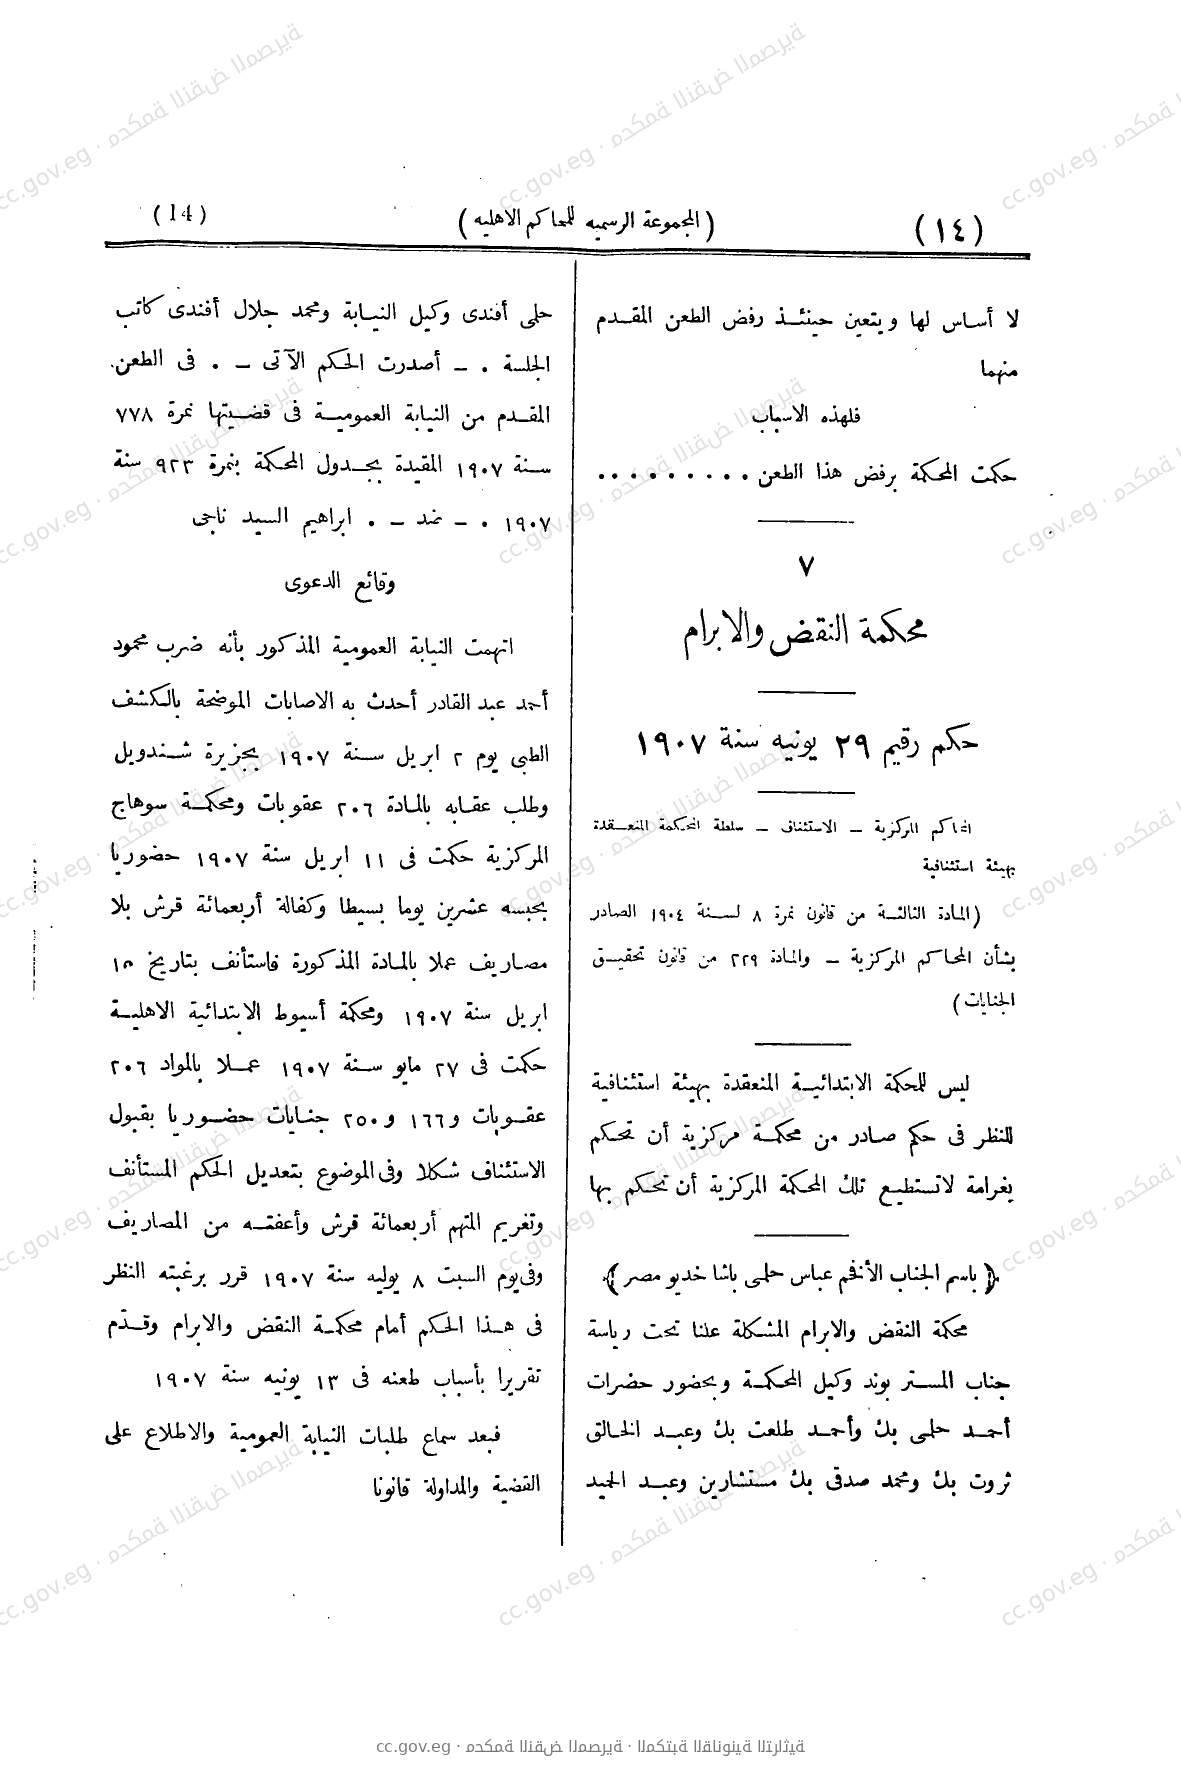 (١٤)
(المجموعة الرسميه للمحاكم الاهليه)
(14)
لا أساس لها ويتعين حينئذ رفض الطعن المقدم
منهما
فلهذه الاسباب
حكمت المحكمة برفض هذا الطعن . . . . . . . . .
٧
محكمة النقض والابرام
حكم رقيم ٢٩ يونيه سنة ١٩٠٧
المحاكم المركزية – الاستئناف – سلطة المحكمة المنعقدة
بهيئة استئنافية
(المادة الثالثة من قانون نمرة ٨ لسنة ١٩٠٤ الصادر
بشأن المحاكم المركزية – والمادة ٢٢٩ من قانون تحقيق
الجنايات)
ليس للمحكمة الابتدائية المنعقدة بهيئة استئنافية
للنظر فى حكم صادر من محكمة مركزية أن تحكم
بغرامة لاتستطيع تلك المحكمة المركزية أن تحكم بها
(باسم الجناب الأفخم عباس حلمى باشا خديو مصر)
محكمة النقض والابرام المشكلة علنا تحت رياسة
جناب المستر بوند وكيل المحكمة وبحضور حضرات
أحمد حلمى بك وأحمد طلعت بك وعبد الخالق
ثروت بك ومحمد صدقى بك مستشارين وعبد الحميد
حلمى أفندى وكيل النيابة ومحمد جلال أفندى كاتب
الجلسة . – أصدرت الحكم الآتى – . فى الطعن
المقدم من النيابة العمومية فى قضيتها نمرة ٧٧٨
سنة ١٩٠٧ المقيدة بجدول المحكمة بنمرة ٩٢٣ سنة
١٩٠٧ . – ضد – . ابراهيم السيد ناجى
وقائع الدعوى
اتهمت النيابة العمومية المذكور بأنه ضرب محمود
أحمد عبد القادر أحدث به الاصابات الموضحة بالكشف
الطبى يوم ٢ ابريل سنة ١٩٠٧ بجزيرة شندويل
وطلب عقابه بالمادة ٢٠٦ عقوبات ومحكمة سوهاج
المركزية حكمت فى ١١ ابريل سنة ١٩٠٧ حضوريا
بحبسه عشرين يوما بسيطا وكفالة أربعمائة قرش بلا
مصاريف عملا بالمادة المذكورة فاستأنف بتاريخ ١٥
ابريل سنة ١٩٠٧ ومحكمة أسيوط الابتدائية الاهلية
حكمت فى ٢٧ مايو سنة ١٩٠٧ عملا بالمواد ٢٠٦
عقوبات و١٦٦ و٢٥٠ جنايات حضوريا بقبول
الاستئناف شكلا وفى الموضوع بتعديل الحكم المستأنف
وتغريم المتهم أربعمائة قرش وأعفته من المصاريف
وفى يوم السبت ٨ يوليه سنة ١٩٠٧ قرر برغبته النظر
فى هذا الحكم أمام محكمة النقض والابرام وقدّم
تقريرا بأسباب طعنه فى ١٣ يونيه سنة ١٩٠٧
فبعد سماع طلبات النيابة العمومية والاطلاع على
القضية والمداولة قانونا
cc.gov.eg · محكمة النقض المصرية · المكتبة القانونية التراثية